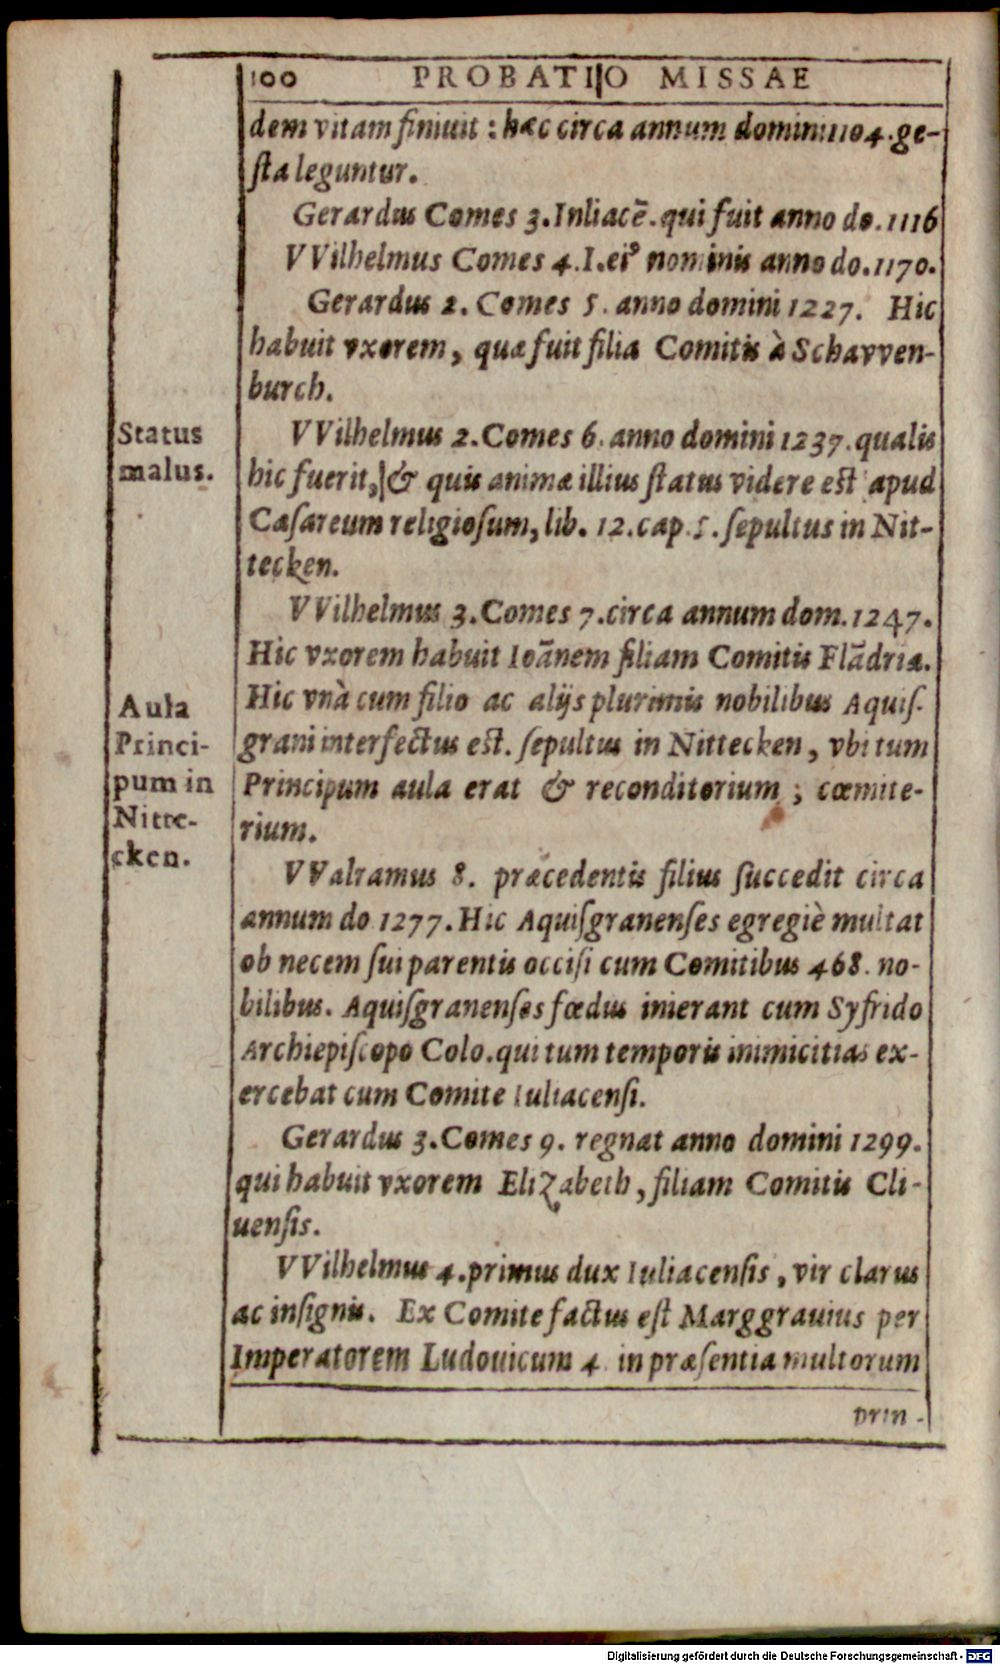 100 PROBATIO MISSAE
dem vitam finiuit : hæc circa annum domini 1104. ge-
sta leguntur.
Gerardus Comes 3. Inliacē. qui fuit anno do. 1116
VVilhelmus Comes 4. I. eiꝰ nominis anno do. 1170.
Gerardus 2. Comes 5. anno domini 1227. Hic
habuit vxorem, quæ fuit filia Comitis à Schavven-
burch.
Status
malus.
VVilhelmus 2. Comes 6. anno domini 1237. qualis
hic fuerit, & quis animæ illius status videre est apud
Cæsareum religiosum, lib. 12. cap. 5. sepultus in Nit-
tecken.
VVilhelmus 3. Comes 7. circa annum dom. 1247.
Hic vxorem habuit Ioānem filiam Comitis Flādriæ.
Aula
Princi-
pum in
Nitte-
cken.
Hic vnà cum filio ac alijs plurimis nobilibus Aquis-
grani interfectus est. sepultus in Nittecken, vbi tum
Principum aula erat & reconditorium ; cœmite-
rium.
VValramus 8. præcedentis filius succedit circa
annum do 1277. Hic Aquisgranenses egregiè multat
ob necem sui parentis occisi cum Comitibus 468. no-
bilibus. Aquisgranenses fœdus inierant cum Syfrido
Archiepiscopo Colo. qui tum temporis inimicitias ex-
ercebat cum Comite Iuliacensi.
Gerardus 3. Comes 9. regnat anno domini 1299.
qui habuit vxorem Elizabeth, filiam Comitis Cli-
uensis.
VVilhelmus 4. primus dux Iuliacensis, vir clarus
ac insignis. Ex Comite factus est Marggrauius per
Imperatorem Ludouicum 4. in præsentia multorum
prin-
Digitalisierung gefördert durch die Deutsche Forschungsgemeinschaft - DFG